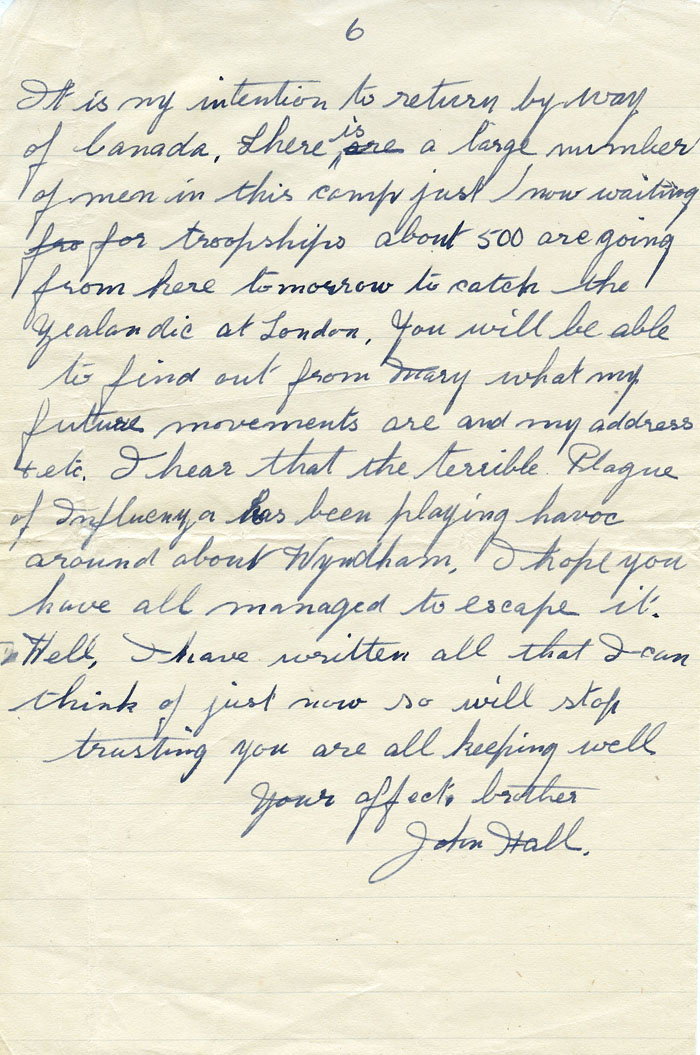 6
It is my intention to return by way
of Canada. There is are a large number
of men in this camp just now waiting
fro for troopships about 500 are going
from here tomorrow to catch the
Zealandic at London. You will be able
to find out from Mary what my
future movements are and my address
& etc. I hear that the terrible Plague
of Influenza has been playing havoc
around about Wyndham, I hope you
have all managed to escape it.
Well, I have written all that I can
think of just now so will stop
trusting you are all keeping well
Your affect. brother
John Hall.